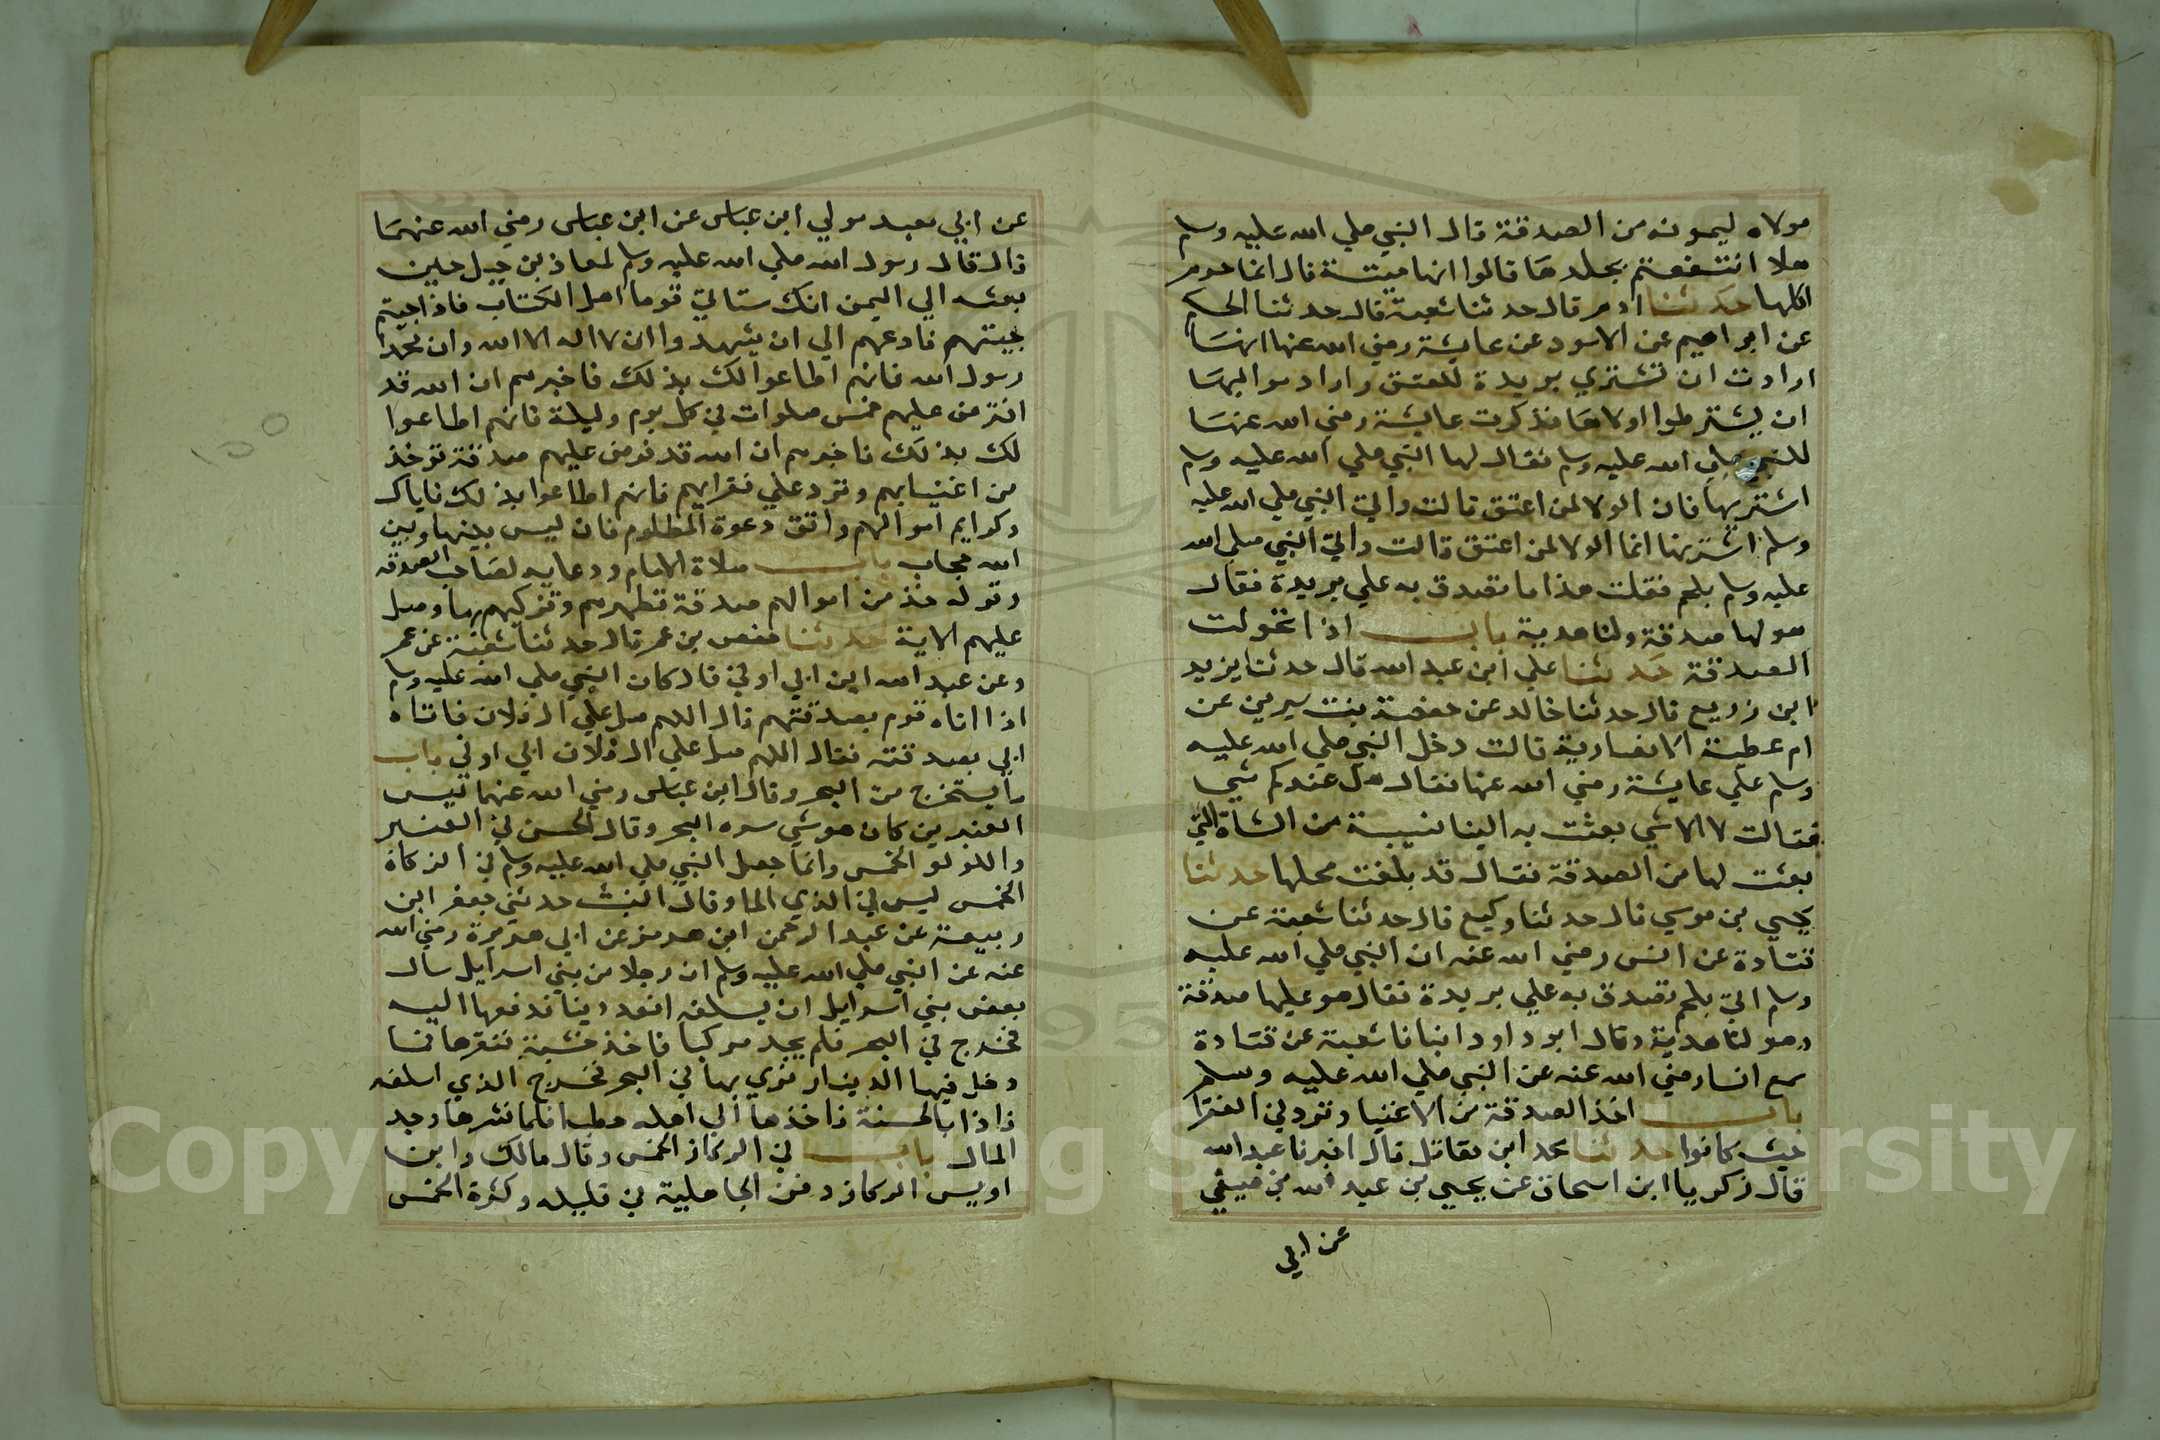 مولاه ليمونه من الصدقة قال النبي صلي الله عليه وسلم
هلا انتفعتم بجلدها قالوا انها ميتة قال انما حرم
اكلها حدثنا ادم قال حدثنا شعبة قال حدثنا الحكم
عن ابراهيم عن الاسود عن عايشة رضي الله عنها انها
ارادت ان تشتري بريدة للعتق واراد مواليها
ان يشترطوا اولاها فذكرت عايشة رضي الله عنها
للنبي صلي الله عليه وسلم فقال لها النبي صلي الله عليه وسلم
اشتريها فان الولا لمن اعتق قالت واتي النبي صلي الله عليه
وسلم اشتريها انما الولا لمن اعتق قالت واتي النبي صلي الله
عليه وسلم بلحم فقلت هذا ما تصدق به علي بريدة فقال
هو لها صدقة ولنا هدية باب اذا تحولت
الصدقة حدثنا علي ابن عبد الله قال حدثنا يزيد
ابن زريع قال حدثنا خالد عن حفصة بنت سيرين عن
ام عطية الانصارية قالت دخل النبي صلي الله عليه
وسلم علي عايشة رضي الله عنها فقال هل عندكم شي
فقالت لا الا شي بعثت به الينا نسيبة من الشاة التي
بعثت لها من الصدقة فقال قد بلغت محلها حدثنا
يحيي بن موسي قال حدثنا وكيع قال حدثنا شعبة عن
قتادة عن انس رضي الله عنه ان النبي صلي الله عليه
وسلم اتي بلحم تصدق به علي بريدة فقال هو عليها صدقة
وهو لنا هدية وقال ابو داود انبانا شعبة عن قتادة
سمع انسا رضي الله عنه عن النبي صلي الله عليه وسلم
باب اخذ الصدقة من الاغنيا وترد في الفقرا
حيث كانوا حدثنا محمد ابن مقاتل قال اخبرنا عبد الله
قال زكريا ابن اسحاق عن يحيي بن عبد الله بن صيفي
عن ابي
عن ابي معبد مولي ابن عباس عن ابن عباس رضي الله عنهما
قال قال رسول الله صلي الله عليه وسلم لمعاذ بن جبل حين
بعثه الي اليمن انك ستاتي قوما اهل الكتاب فاذا جيتم
جيتهم فادعهم الي ان يشهدوا ان لا اله الا الله وان محمدا
رسول الله فانهم اطاعوا لك بذلك فاخبرهم ان الله قد
افترض عليهم خمس صلوات في كل يوم وليلة فانهم اطاعوا
لك بذلك فاخبرهم ان الله قد فرض عليهم صدقة توخذ
من اغنيايهم وترد علي فقرايهم فانهم اطاعوا بذلك فاياك
وكرايم اموالهم واتق دعوة المظلوم فان ليس بينها وبين
الله حجاب باب صلاة الامام ودعايه لصاحب الصدقه
وقوله خذ من اموالهم صدقة تطهرهم وتزكيهم بها وصل
عليهم الاية حدثنا حفص بن عمر قال حدثنا شعبة عن عمر
وعن عبد الله ابن ابي اوفي قال كان النبي صلي الله عليه وسلم
اذا اتاه قوم بصدقتهم قال اللهم صل علي ال فلان فاتاه
ابي بصدقته فقال اللهم صل علي ال فلان ابي اوفي باب
ما يستخرج من البحر وقال ابن عباس رضي الله عنهما ليس
العنبر بن كان هو شي سره البحر وقال الحسن في العنبر
واللولو الخمس وانما جعل النبي صلي الله عليه وسلم في الزكاة
الخمس ليس في الذي الما وقال الليث حدثني جعفر ابن
ربيعة عن عبد الرحمن ابن هرمز عن ابي هريرة رضي الله
عنه عن النبي صلي الله عليه وسلم ان رجلا من بني اسرايل سال
بعض بني اسرايل ان يسلفه الف دينار فدفعها اليه
فخرج في البحر فلم يجد مركبا فاخذ خشبة فنقرها فما
دخل فيها الدينار فرمي بها في البحر فخرج الذي اسلفه
فاذا بالخشبة فاخذها الي اهله حطبا فلما نشرها وجد
المال باب في الركاز الخمس وقال مالك وابن
اويس الركاز دفن الجاهلية في قليله وكثرة الخمس
100
Copyright © King Saud University